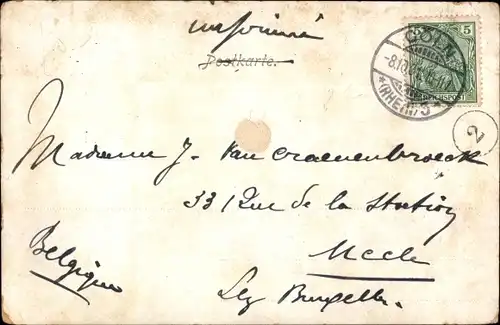 imprimé
Postkarte.
5
REICHSPOST
CÖLN
*(RHEIN)5*
2
Madame J. Van Craenenbroeck
33 Rue de la Station
Uccle
Belgique
Lez Bruxelles.